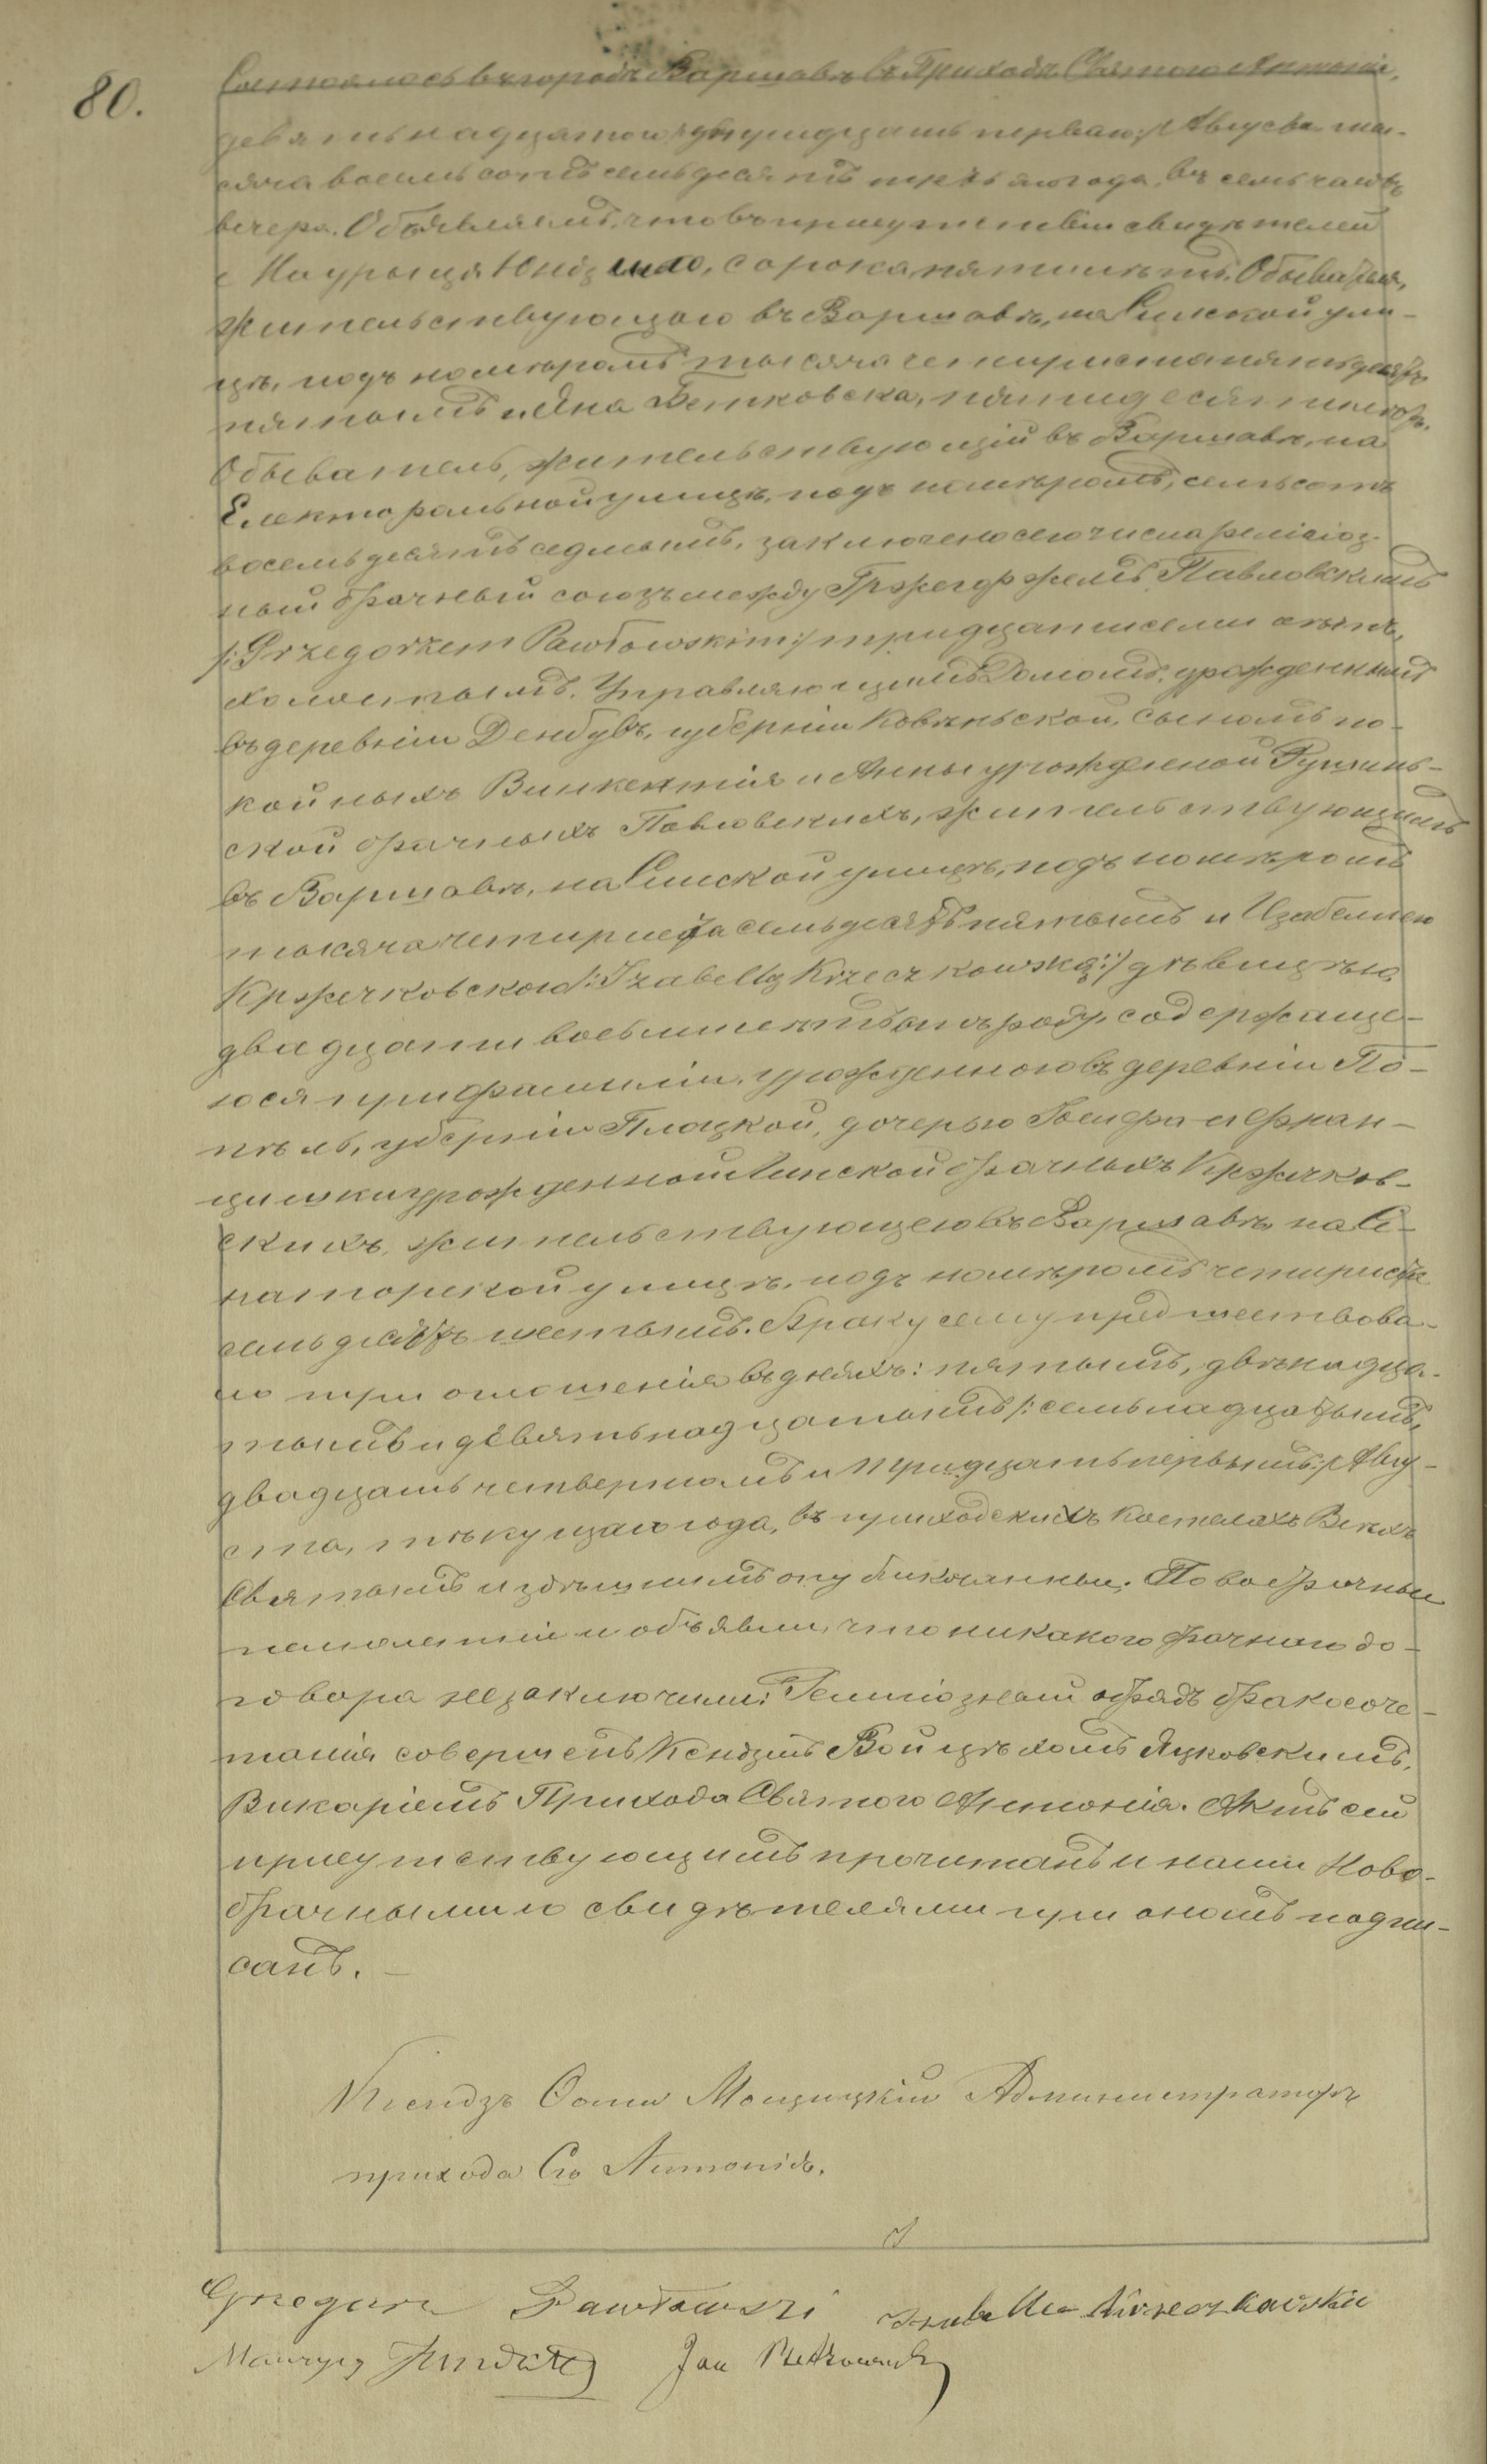 80.
Состоялось въ городѣ Варшавѣ въ Приходѣ Святого Антонія,
девятьнадцатого /: тридцать перваго :/ Августа ты-
сяча восемь сотъ семьдесятъ третьяго года, въ семь часовъ
вечера. Объявляемъ, что въ присутствіи свидѣтелей
Маурыця, сорока пяти лѣтъ, Обывателя,
жительствующаго въ Варшавѣ, на Сенской ули-
цѣ, подъ номѣромъ тысяча четыриста пятьдесятъ
пятымъ и Яна Бетковска, пятидесяти лѣтъ,
Обыватель, жительствующій въ Варшавѣ, на
Електоральной улицѣ, подъ номѣромъ, семьсотъ
восемьдесятъ седмымъ, заключено сего числа религіоз-
ный брачный союзъ между Гржегоржемъ Павловскимъ
/: Grzegorzem Pawłowskim :/ тридцати семи лѣтъ,
холостымъ, Управляющимъ Домомъ, урожденнымъ
въ деревніи Дембувъ, губерніи Ковеньской, сыномъ по-
койныхъ Винкентія и Анны урожденной
ской брачныхъ Павловскихъ, жительствующимъ
въ Варшавѣ, на Сенской улицѣ, подъ номѣромъ
тысяча четириста семьдесятъ пятымъ и Изабеллею
Кржечковскою /: Izabellą Krzeczkowską :/ дѣвицѣю
двадцати восьми лѣтъ отъ роду, содержаще-
юся при фамиліи, урожденною въ деревніи По-
пѣль, губерніи Плоцкой, дочерью Іосифа и Фран-
цишки урожденной Липской брачныхъ Кржечков-
скихъ, жительствующею въ Варшавѣ на Се-
наторской улицѣ, подъ номѣромъ четириста
семьдесятъ шестымъ. Браку сему предшествова-
ло три оглошенія въ дняхъ: пятымъ, двѣнадца-
тымъ и девятьнадцатымъ /: семьнадцатымъ,
двадцать четвертымъ и тридцать первымъ :/ Авгу-
ста, тѣкущаго года, въ приходскихъ костелахъ Всѣхъ
Святымъ и здѣшнимъ опубликованны. Новобрачныи
объявили, что никакого брачнаго до-
говора не заключили. Религіозный обрядъ бракосоче-
танія совершенъ Ксендзмъ Войцѣхомъ Яцковскимъ,
Викаріемъ Прихода Святого Антонія. Актъ сей
присутствующимъ прочитанъ и нами Ново-
брачными и свидѣтелями при ономъ подпи-
санъ. —
Ксендзъ Фома Мощицкій Администраторъ
прихода Св. Антонія.
Grzegorz Pawłowski Izabella Krzeczkowska
Maurycy Jan Betkowski